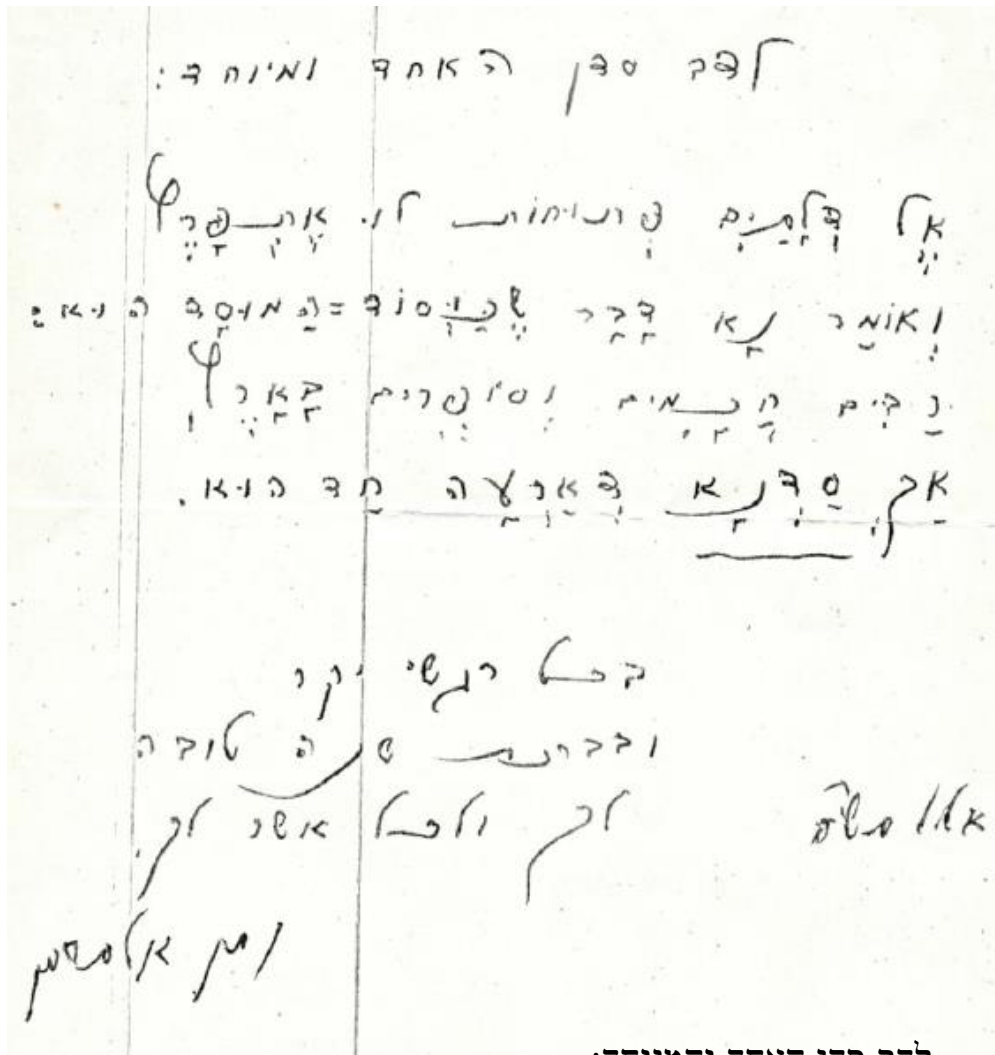 לדב סדן האחד ומיוחד:
אֶל דְּלָתַיִם פְּתוּחוֹת לוּ אֶתְפָּרֵץ
וְאוֹמַר נָא דָּבָר שֶׁהַיְּסוֹד=הַמּוּסָד הוּא:
רַבִּים חֲכָמִים וְסוֹפְרִים בָּאָרֶץ,
אַךְ סַדְנָא דְּאַרְעָה חַד הוּא.
בכל רגשי יקר
ובברכת שנה טובה
לך ולכל אשר לך.
אלול
נתן אלתרמן